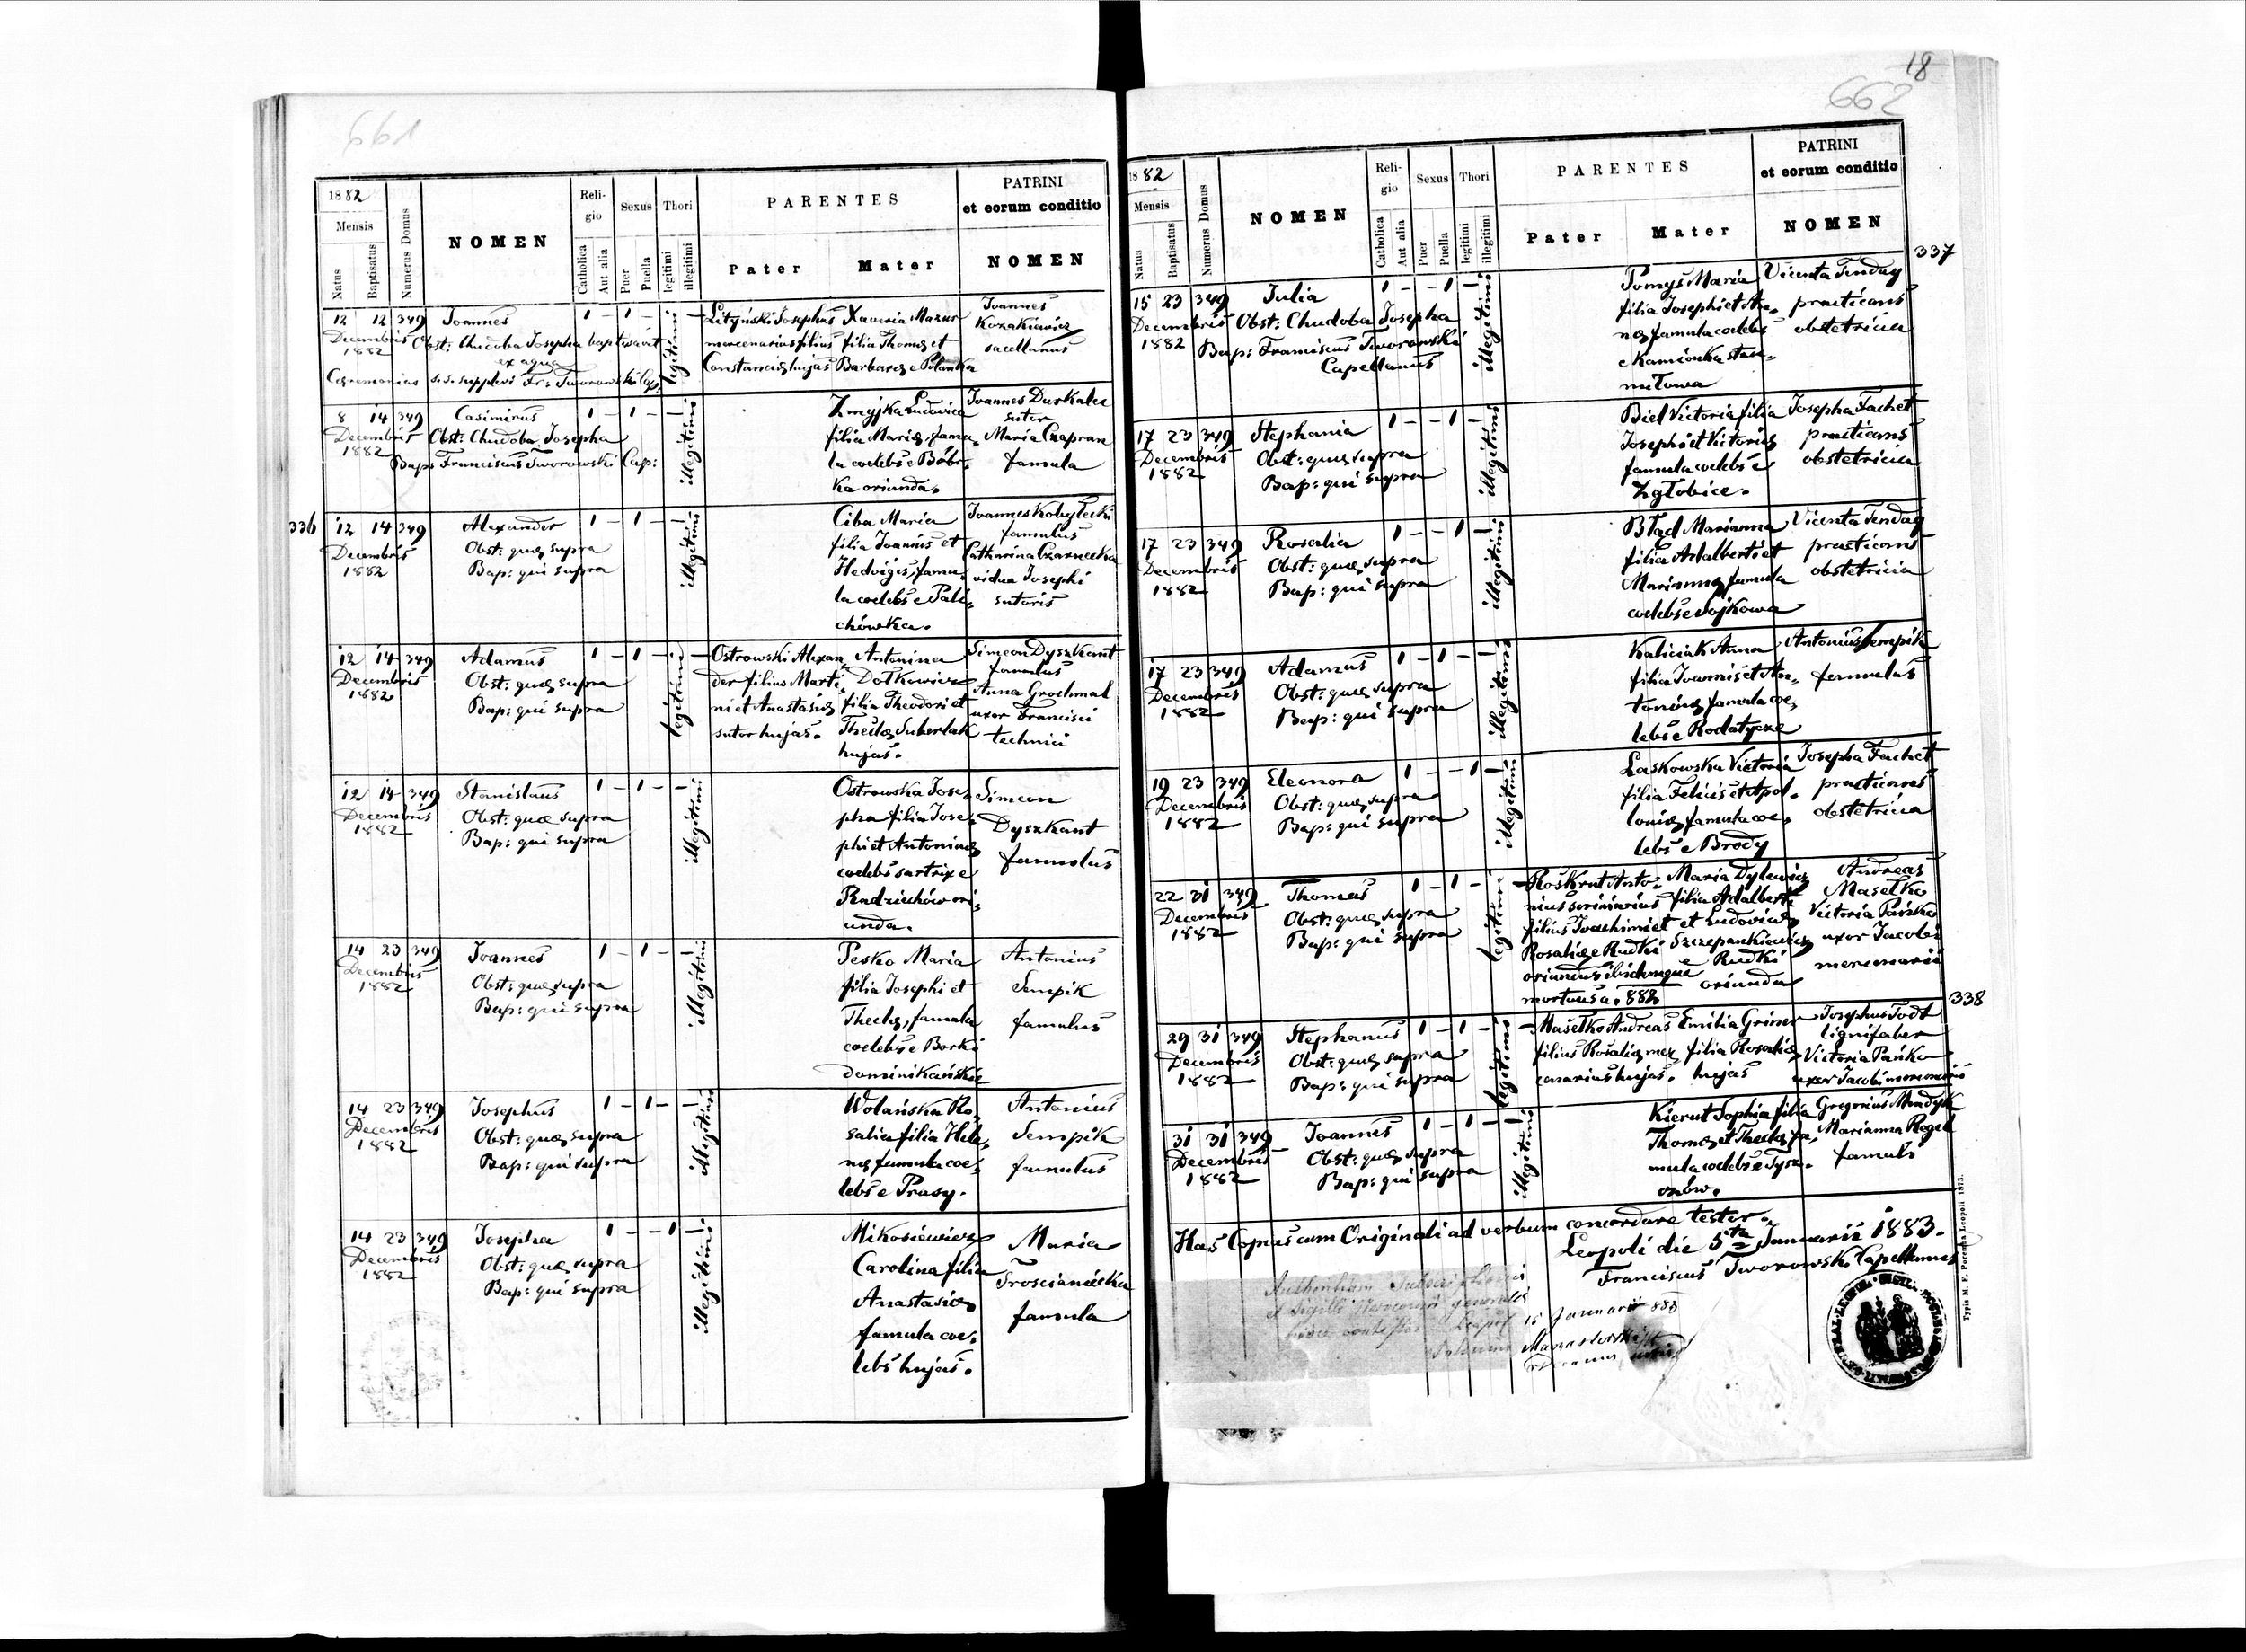 661
1882
Mensis
Natus
Baptisatus
Numerus Domus
NOMEN
Religio
Catholica
Aut alia
Sexus
Puer
Puella
Thori
legitimi
illegitimi
PARENTES
Pater
Mater
PATRINI
et eorum conditio
NOMEN
12 12 349 Joannes 1 - 1 - legitimi -
Decembris
1882
Obst: Chudoba Josepha baptisavit
ex aqua
Ceremonias s.s. supplevi Fr: Tworowski Cap:
Lityński Josephus
mercenarius filius
Constancię hujas
Xaveria Mazur
filia Thomę et
Barbarę e Polanka
Joannes
Kozakiewicz
sacellanus
8 14 349 Casimirus 1 - 1 - - 1 illegitimi
Decembris
1882
Obst: Chudoba Josepha
Bap: Franciscus Tworowski Cap:
Zmyjka Ludovica
filia Marię, famu,
la coelebs e Bóbr,
ka oriunda.
Joannes Duskalu
sutor
Maria Czapran
famula
336
12 14 349 Alexander 1 - 1 - - 1 illegitimi
Decembris
1882
Obst: quę supra
Bap: qui supra
Ciba Maria
filia Joannis et
Hedvigis, famu,
la coelebs e Pali,
chówka.
Joannes Kobyłecki
famulus
Catharina Czarnecka
vidua Josephi
sutoris
12 14 349 Adamus 1 - 1 - legitimi -
Decembris
1882
Obst: quę supra
Bap: qui supra
Ostrowski Alexan,
der filius Marti,
ni et Anastasię
sutor hujas.
Antonina
Dotkowicz
filia Theodori et
Theclę Suberlak
hujas.
Simeon Dyszkant
famulus
Anna Grochmal
uxor Francisci
technici
12 14 349 Stanislaus 1 - 1 - - 1 illegitimi
Decembris
1882
Obst: quæ supra
Bap: qui supra
Ostrowska Jose,
pha filia Jose,
phi et Antoninę
coelebs sartrix e
Radziechów ori,
unda.
Simeon
Dyszkant
famulus
14 23 349 Joannes 1 - 1 - - 1 illegitimi
Decembris
1882
Obst: quę supra
Bap: qui supra
Pesko Maria
filia Josephi et
Theclę, famula
coelebs e Borki
dominikańskie
Antonius
Sempik
famulus
14 23 349 Josephus 1 - 1 - - 1 illegitimi
Decembris
1882
Obst: quę supra
Bap: qui supra
Wolańska Ro,
salia filia Hele,
nę famula coe,
lebs e Prusy.
Antonius
Sempik
famulus
14 23 349 Josepha 1 - - 1 - 1 illegitimi
Decembris
1882
Obst: quę supra
Bap: qui supra
Mikosiewicz
Carolina filia
Anastasię
famula coe,
lebs hujas.
Maria
Trościaniecka
famula
18
662
1882
Mensis
Natus
Baptisatus
Numerus Domus
NOMEN
Religio
Catholica
Aut alia
Sexus
Puer
Puella
Thori
legitimi
illegitimi
PARENTES
Pater
Mater
PATRINI
et eorum conditio
NOMEN
337
15 23 349 Julia 1 - - 1 - 1 illegitimi
Decembris
1882
Obst: Chudoba Josepha
Bap: Franciscus Tworowski
Capellanus
Pomyś Maria
filia Josephi et An,
nę famula coelebs
e Kamionka stru,
miłowa
Vicenta Tenday
practicans
obstetricia
17 23 349 Stephania 1 - - 1 - 1 illegitimi
Decembris
1882
Obst: quę supra
Bap: qui supra
Biel Victoria filia
Josephi et Victorię
famula coelebs e
Zgłobice.
Josepha Fachet
practicans
obstetricia
17 23 349 Rosalia 1 - - 1 - 1 illegitimi
Decembris
1882
Obst: quę supra
Bap: qui supra
Błąd Marianna
filia Adalberti et
Mariannę famula
coelebs e Sojkowa
Vicenta Tenday
practicans
obstetricia
17 23 349 Adamus 1 - 1 - - 1 illegitimi
Decembris
1882
Obst: quę supra
Bap: qui supra
Kaliciak Anna
filia Joannis et An,
tonię famula coe,
lebs e Rodatycze
Antonius Sempik
famulus
19 23 349 Eleonora 1 - - 1 - 1 illegitimi
Decembris
1882
Obst: quę supra
Bap: qui supra
Laskowska Victoria
filia Felicis et Apol,
lonię famula coe,
lebs e Brody
Josepha Fachet
practicans
obstetricia
22 31 349 Thomas 1 - 1 - legitimi -
Decembris
1882
Obst: quę supra
Bap: qui supra
Roskrut Anto,
nius scriniarius
filius Joachimi et
Rosalię e Rudki
oriundus ibidemque
mortuus a. 882
Maria Dylewicz
filia Adalberti
et Ludovicę
Szczepankiewicz
e Rudki
oriunda
Andreas
Masełko
Victoria Pańko
uxor Jacobi
mercenarii
338
29 31 349 Stephanus 1 - 1 - legitimi -
Decembris
1882
Obst: quę supra
Bap: qui supra
Masełko Andreas
filius Rosalię mer,
cenarius hujas.
Emilia Griner
filia Rosalię
hujas
Josephus Todt
lignifaber
Victoria Pańko
uxor Jacobi mercenarii
31 31 349 Joannes 1 - 1 - - 1 illegitimi
Decembris
1882
Obst: quę supra
Bap: qui supra
Kierut Sophia filia
Thomę et Theclę fa,
mula coelebs e Tysz,
ozów.
Gregorius Mindyk
Marianna Regel
famuli
Has Copias cum Originali ad verbum concordare testor.
Leopoli die 5ta Januarii 1883.
Franciscus Tworowski Capellanus
15 Januarii 883
Typis M. F. Poremba Leopoli 1873.